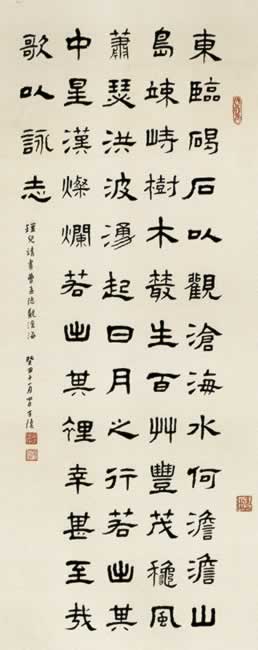 東臨碣石以觀滄海水何澹澹山
島竦峙樹木叢生百艸豐茂穐風
蕭瑟洪波湧起日月之行若出其
中星漢燦爛若出其裡幸甚至哉
歌以詠志
兒請書曹孟德觀滄海
癸丑十月